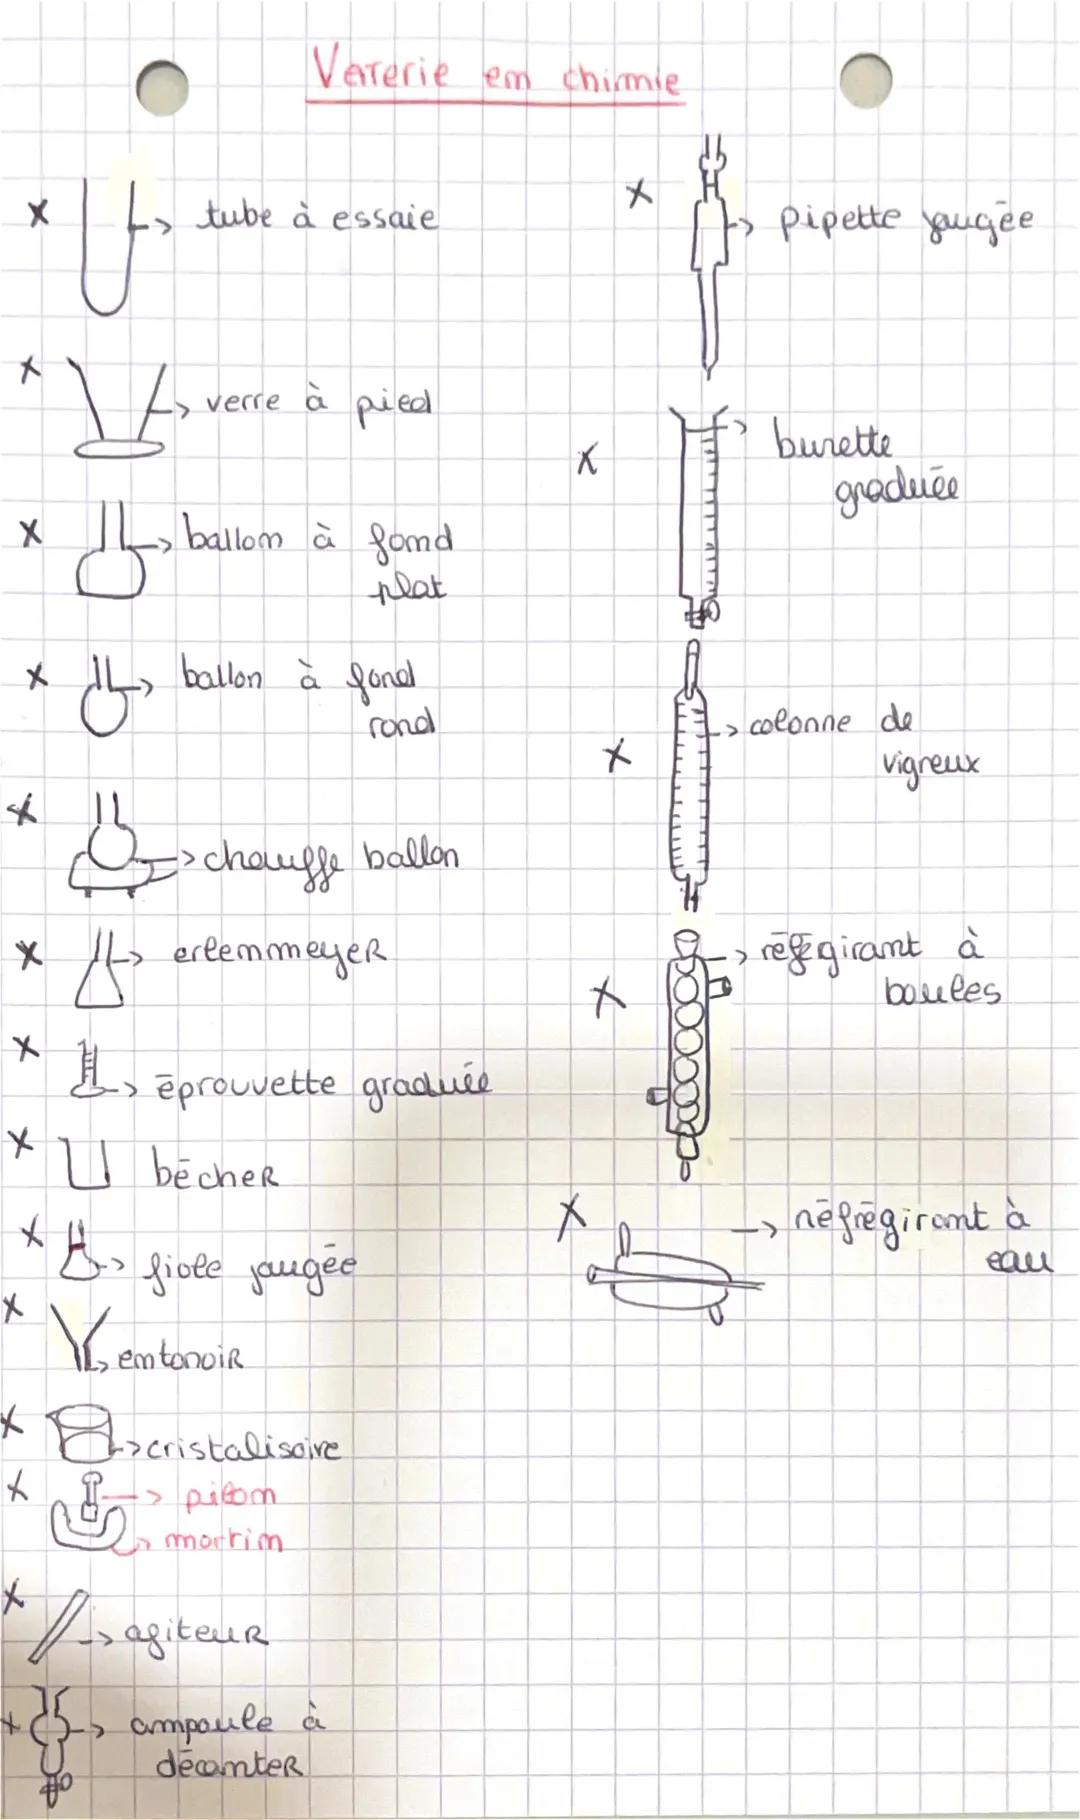 Verrerie en chimie
tube à essaie
verre à pied
ballon à fond
plat
ballon à fond
rond
chauffe ballon
erlenmeyer
éprouvette graduée
bécher
fiole jaugée
entonoir
cristalisoire
pilon
mortim
agiteur
ampoule à
décanter
pipette jaugée
burette
graduée
colonne de
vigreux
réfégirant à
boules
réfrégirant à
eau